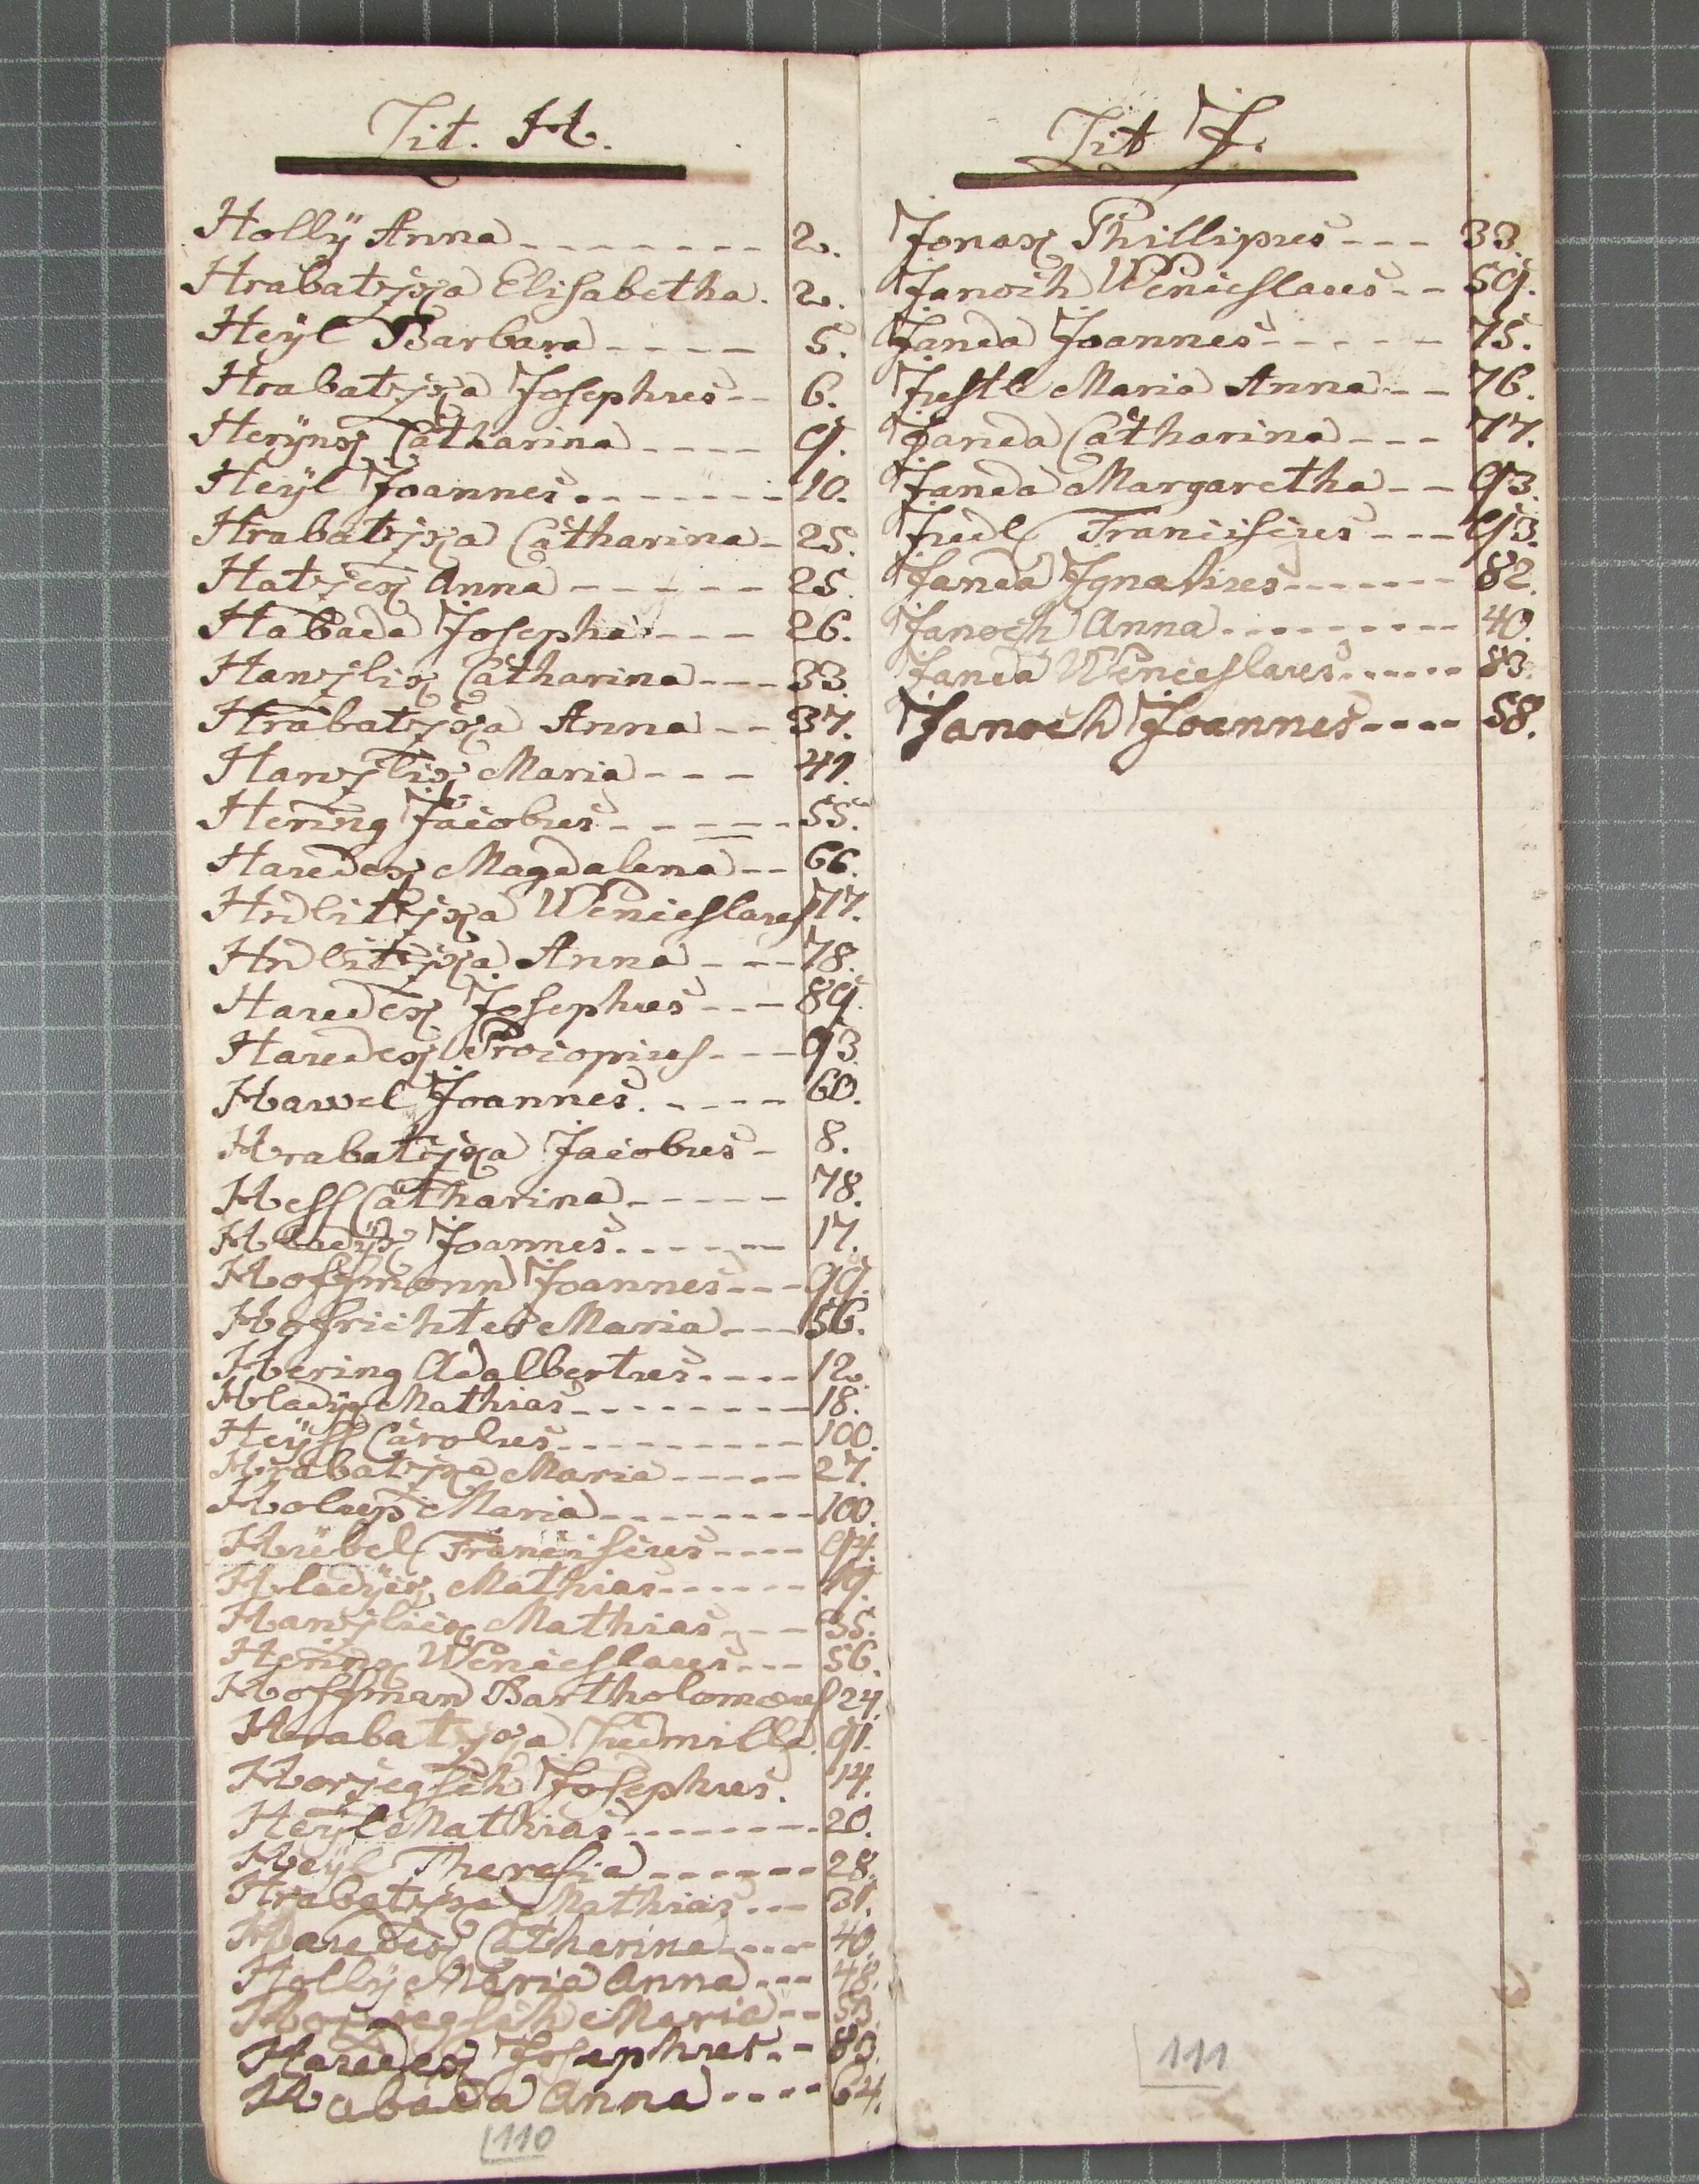 Lit. H.
Hollÿ Anna 2.
Hrabatzka Elisabetha. 2.
Heÿl Barbara 5.
Hrabatzka Josephus 6.
Herÿnk Catharina 9.
Heÿl Joannes 10.
Hrabatzka Catharina 25.
Hatzek Anna 25.
Habada Josepha 26.
Hawzlik Catharina 33.
Hrabatzka Anna 37.
Hawzlik Maria 41.
Hering Jacobus 55.
Haudek Magdalena 66.
Hrdlitzka Wenceslaus 77.
Hrdlitzka Anna 78.
Haudek Josephus 89.
Haudek Procopius 93.
Hawel Joannes. 60.
Hrabatzka Jacobus 8.
Hess Catharina 78.
Hladÿk Joannes 17.
Hoffmann Joannes 99.
Hofrichter Maria 56.
Hering Adalbertus 12.
Hladÿk Mathias 18.
Heÿss Carolus 100.
Hrabatzka Maria 27.
Holub Maria 100.
Hübel Franciscus 94.
Hladÿk Mathias 19.
Hawzlick Mathias 35.
Wenceslaus 56.
Hoffman Bartholomæus 24.
Hrabatzka Ludmilla 91.
Horzegsch Josephus. 14.
Heÿl Mathias 20.
Heÿl Theresia 28.
Hrabatzka Mathias 31.
Haudek Catharina 40.
Hollÿ Maria Anna 48.
Horzegsch Maria 53.
Haudek Josephus 83.
Habada Anna 64.
110
Lit J.
Jonak Phillipus 33.
Janoch Wenceslaus 59.
Janda Joannes 75.
Justl Maria Anna 76.
Janda Catharina 77.
Janda Margaretha 93.
Judl Franciscus 93.
Janda Ignatius 82.
Janoch Anna 40.
Janda Wenceslaus 83.
Janoch Joannes 58.
111